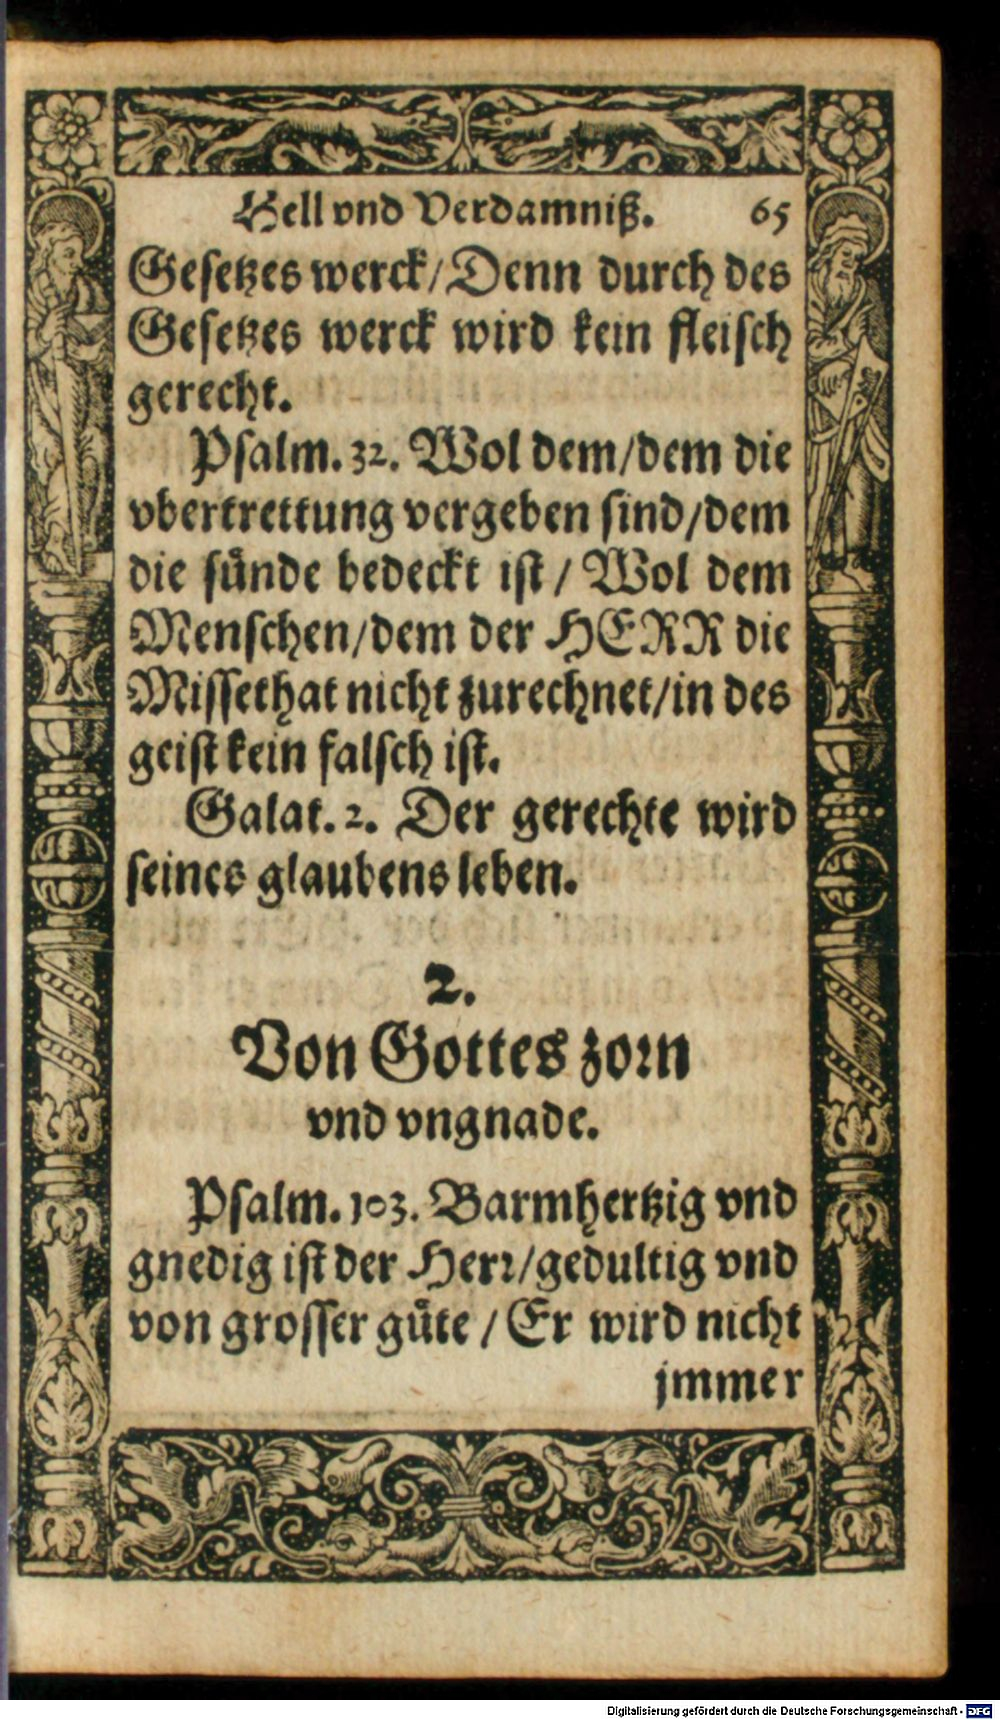 Hell vnd Verdamniß. 65
Gesetzes werck/Denn durch des
Gesetzes werck wird kein fleisch
gerecht.
Psalm. 32. Wol dem/dem die
vbertrettung vergeben sind/dem
die sünde bedeckt ist/ Wol dem
Menschen/dem der HERR die
Missethat nicht zurechnet/in des
geist kein falsch ist.
Galat. 2. Der gerechte wird
seines glaubens leben.
2.
Von Gottes zorn
vnd vngnade.
Psalm. 103. Barmhertzig vnd
gnedig ist der Herr/gedultig vnd
von grosser güte / Er wird nicht
jmmer
Digitalisierung gefördert durch die Deutsche Forschungsgemeinschaft - DFG